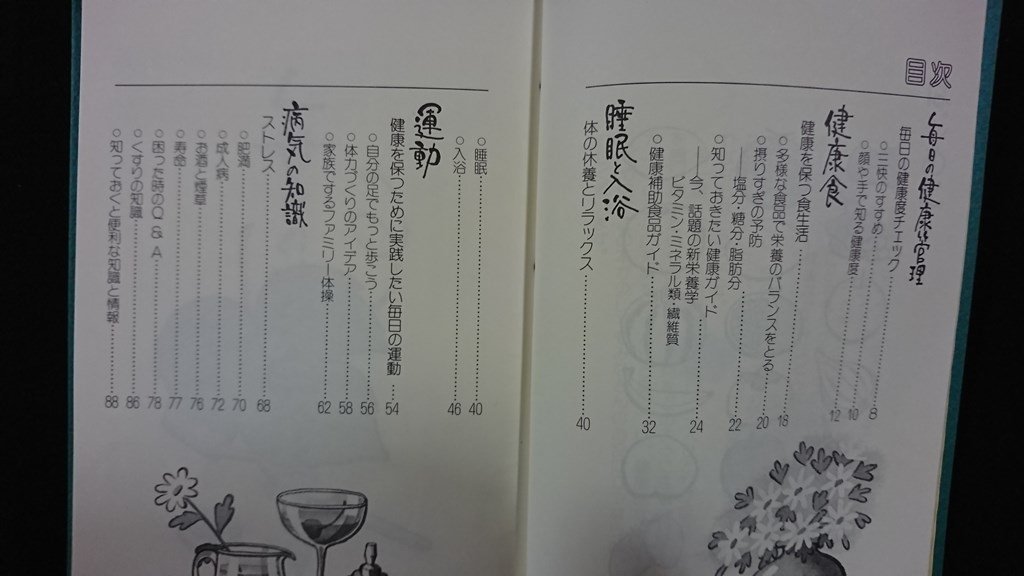 目次
毎日の健康管理
毎日の健康度チェック
○三快のすすめ 8
○顔や手で知る健康度 10
健康食
健康を保つ食生活 12
○多様な食品で栄養のバランスをとる 16
○摂りすぎの予防 20
――塩分・糖分・脂肪分 22
○知っておきたい健康ガイド
――今、話題の新栄養学 24
ビタミン・ミネラル類・繊維質
○健康補助食品ガイド 32
睡眠と入浴
体の休養とリラックス 40
○睡眠 40
○入浴 46
運動
健康を保つために実践したい毎日の運動 54
○自分の足でもっと歩こう 56
○体力づくりのアイデア 58
○家族でするファミリー体操 62
病気の知識
ストレス 68
○肥満 70
○成人病 72
○お酒と煙草 76
○寿命 77
○困った時のQ&A 78
○くすりの知識 86
○知っておくと便利な知識と情報 88